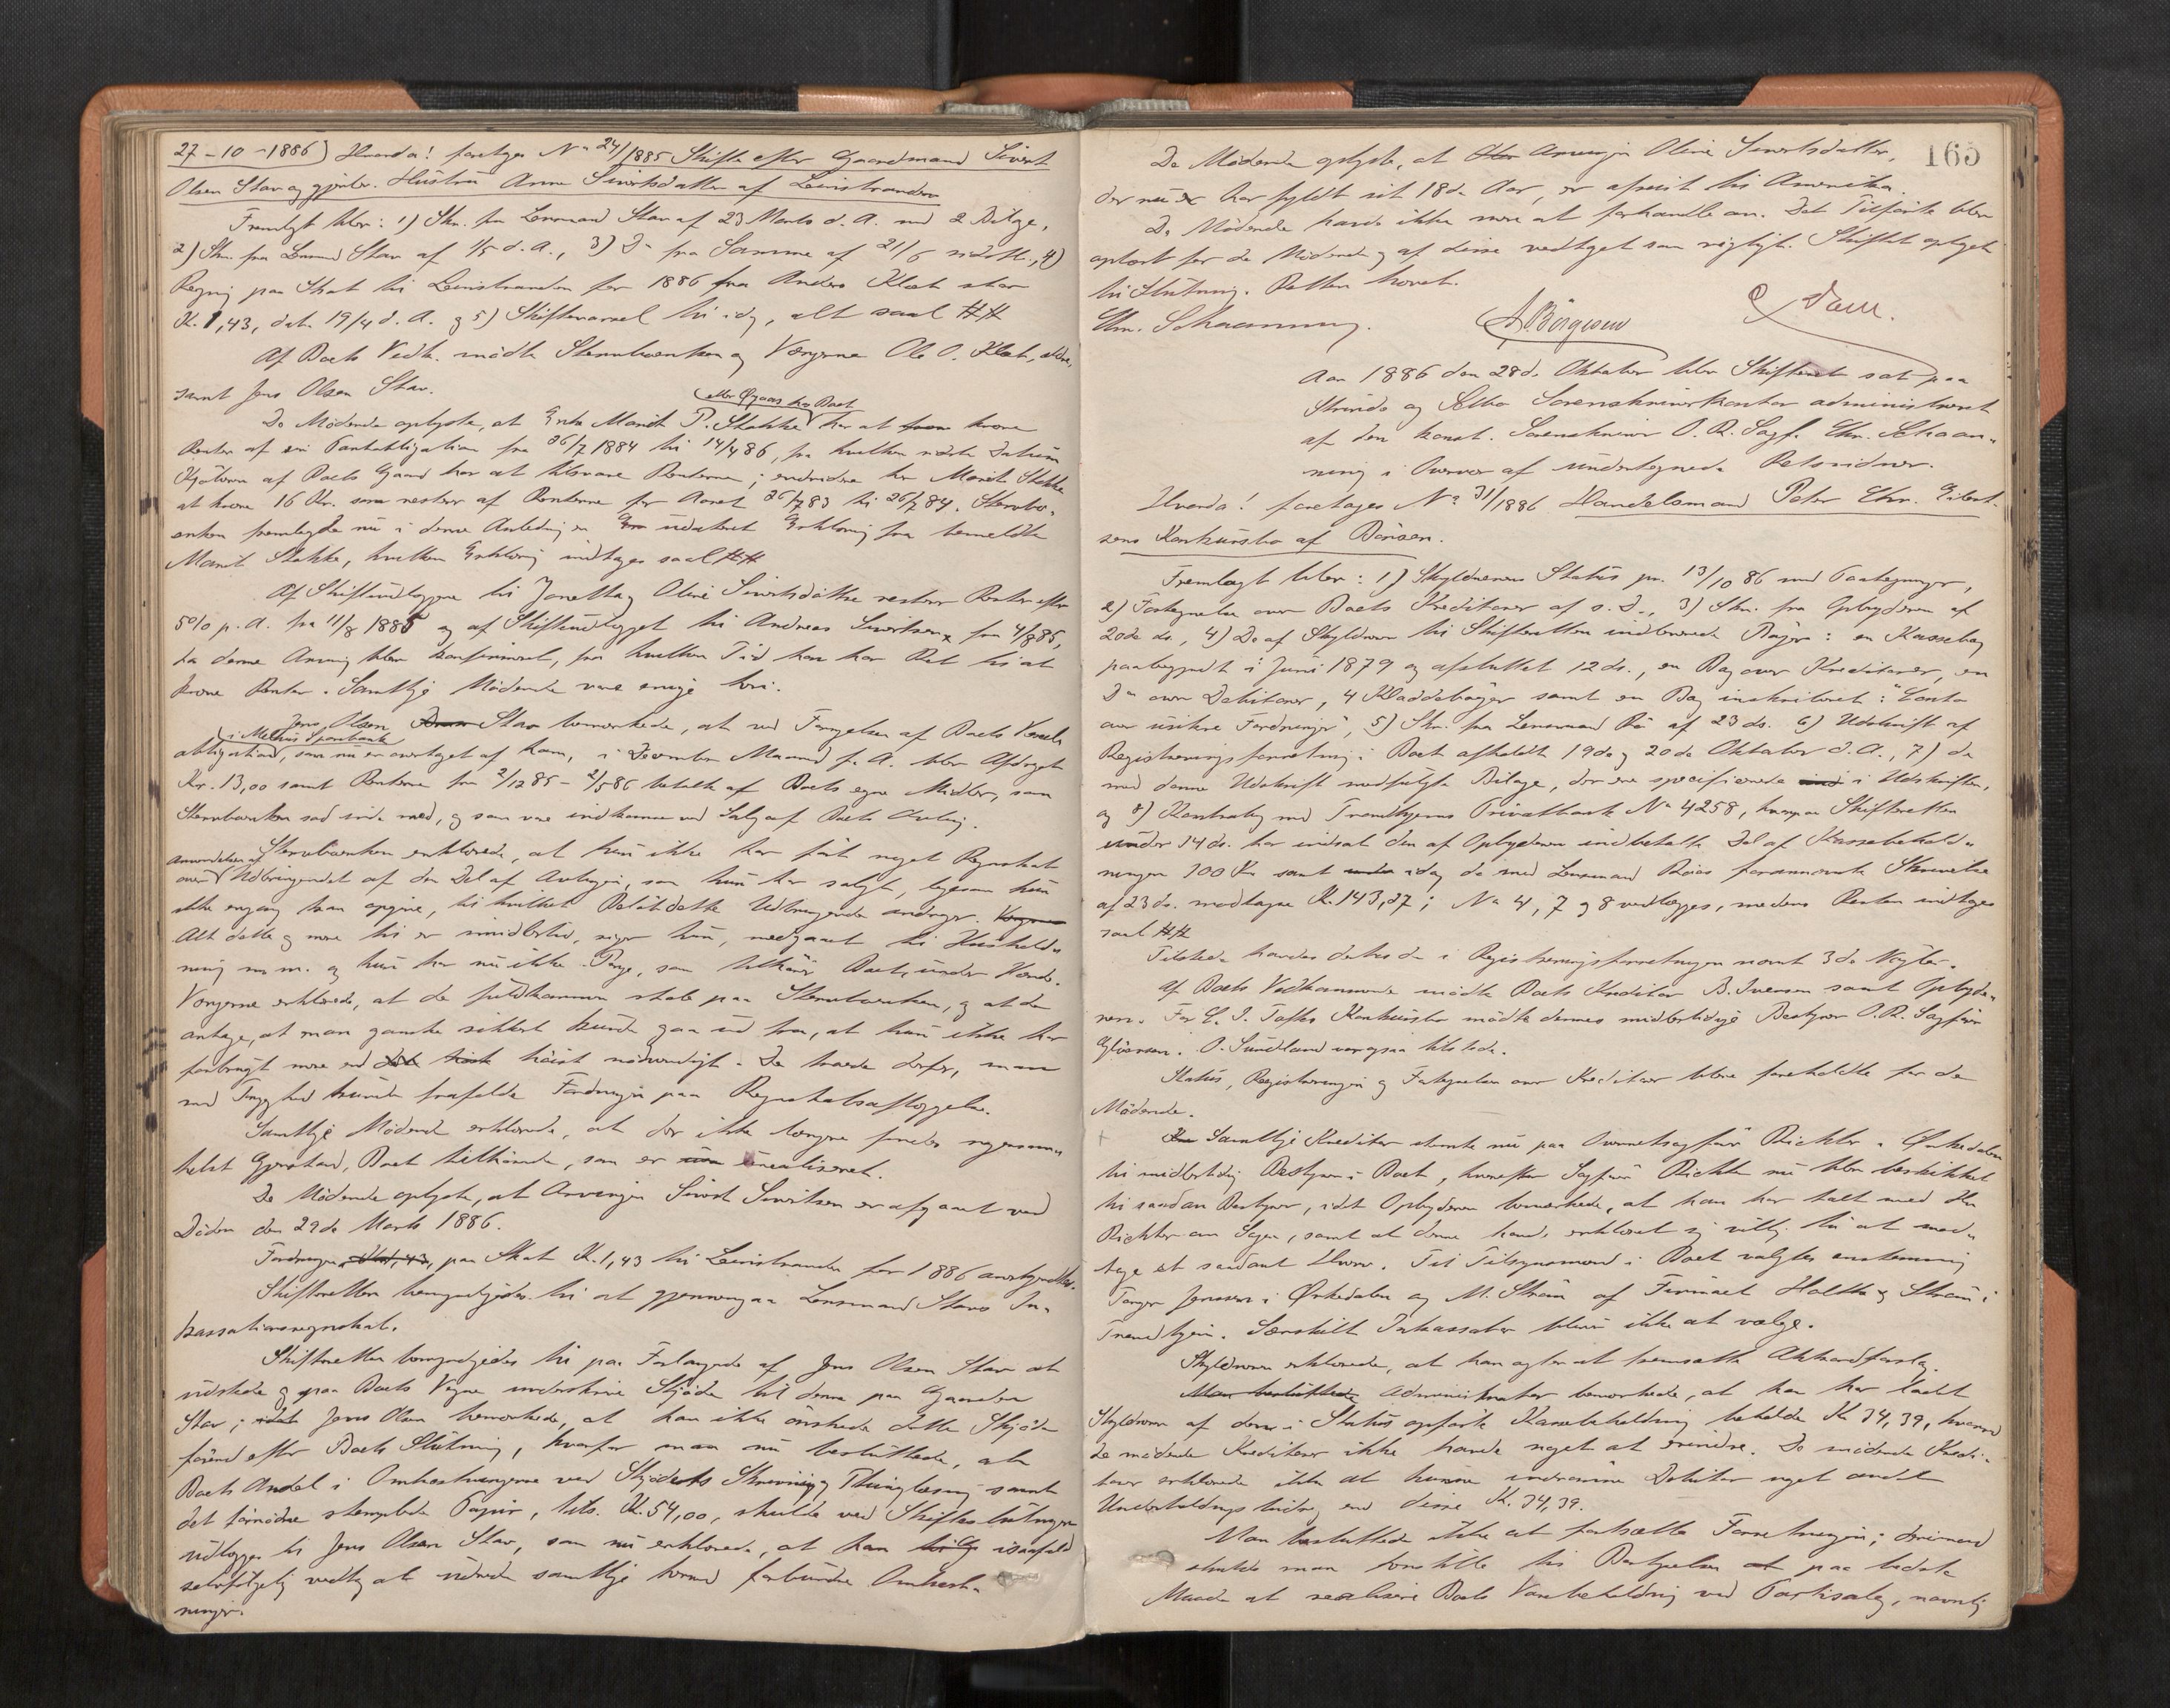 27-10-1886) Hvorda! foretages No 24/1885 Skifte efter Gaardmand Sivert
Olsen Stav og gjenlev. Hustru Anne Sivertsdatter af Leinstranden
Fremlagt blev: 1) Skr. fra Lensmand Stav af 23 Marts d. A. med 2 Bilage,
2) Skr. fra Lensmd Stav af 1/5 d. A., 3) Do fra Samme af 21/6 sidstl., 4)
Regning paa Skat til Leinstranden for 1886 fra Anders Klæt stor
K. 1,43, dat. 19/4 d. A. og 5) Skiftevarsel til idag, alt saal. ##
Af Boets Vedk. mødte Stervboenken og Værgerne Ole O. Klæt, ældre,
samt Jens Olsen Stav.
De Mødende oplyste, at Enke Marit P. Stokke har at kræve
Renter af en Pantobligation fra 26/7 1884 til 14/4 86, fra hvilken sidste Datum
Kjøberen af Boets Gaard har at tilsvare Renterne; endvidere har Marit Stokke
at kræve 16 Kr. som restere af Renterne for Aaret 26/7 83 til 26/7 84. Stervbo-
enken fremlagde nu i denne Anledning en udateret Erklæring fra bemeldte
Marit Stokke, hvilken Erklæring indtages saal ##
Af Skifteudlæggene til Jonetta og Oline Sivertsdøttre restere Renter efter
5% p. A. fra 11/8 1885 og af Skifteudlægget til Andreas Sivertsen fra 4/8 85,
da denne Arving blev konfirmeret, fra hvilken Tid han har Ret til at
kræve Renter. Samtlige Mødende vare enige heri.
Jens Olsen Stav bemærkede, at ved Fornyelsen af Boets Vexel-
i Melhus Sparebank
obligation, som nu er overtaget af ham, i December Maaned f. A. blev Afdraget
Kr. 13,00 samt Renterne fra 2/12 85 - 2/5 86 betalt af Boets egne Midler, som
Stervboenken sad inde med, og som var indkomne ved Salg af Boets Avling.
Stervboenken erklærede, at hun ikke har ført noget Regnskab
over anvendelsen af Udbringendet af den Del af Avlingen, som hun har solgt, ligesom hun
ikke engang kan opgive, til hvilket Beløb dette Udbringende andrager.
Alt dette og mere til er imidlertid, siger hun, medgaaet til Hushold-
ning m.m. og hun har nu ikke Penge, som tilhører Boet, under Hænde.
Værgerne erklærede, at de fuldkommen stole paa Stervboenken, og at de
antage, at man ganske sikkert kunde gaa ud fra, at hun ikke har
forbrugt mere end høist nødvendigt. De troede derfor, man
med Tryghed kunde frafalde Fordringen paa Regnskabsaflæggelse.
Samtlige Mødende erklærede, at der ikke længere findes nogensom-
helst Gjenstand, Boet tilhørende, som er urealiseret.
De Mødende oplyste, at Arvingen Sivert Sivertsen er afgaaet ved
Døden den 29de Marts 1886.
Fordringen paa Skat K. 1,43 til Leinstranden for 1886 anerkjendtes.
Skifteretten bemyndigedes til at gjennemgaa Lensmand Stavs In-
kassationsregnskab.
Skifteretten bemyndigedes til paa Forlangende af Jens Olsen Stav at
udstede og paa Boets Vegne underskrive Skjøde til denne paa Gaarden
Stav; Jens Olsen bemærkede, at han ikke ønskede dette Skjøde
førend efter Boets Slutning, hvorfor man nu besluttede, at
Boets Andel i Omkostningerne ved Skjødets Skrivning og Thinglæsning samt
det fornødne stemplede Papir, tils. K. 54,00, skulde ved Skiftets slutning
udlægges til Jens Olsen Stav, som nu erklærede, at han isaafald
selvfølgelig vedtog at udrede samtlige hermed forbundne Omkost-
ninger.
165
De Mødende oplyste, at Arvingen Oline Sivertsdatter,
der nu har fyldt sit 18de Aar, er afreist til Amerika.
De Mødende havde ikke mere at forhandle om. Det Tilførte blev
oplæst for de Mødende og af disse vedtaget som rigtigt. Skiftet optaget
til Slutning. Retten hævet.
Chr. Schaanning. A. Börgesen
Aar 1886 den 28de Oktober blev Skifteret sat paa
Strinde og Selbo Sorenskriverkontor administreret
af den konst. Sorenskriver O. R. Sagf. Chr. Schaan-
ning i Overvær af undertegnede Retsvidner.
Hvorda! foretages No 31/1886 Handelsmand Peter Chr. Eilert-
sens Konkursbo af Børsen.
Fremlagt blev: 1) Skyldnerens Status pr. 13/10 86 med Paategninger,
2) Fortegnelse over Boets Kreditorer af s. D., 3) Skr. fra Opbyderen af
20de ds., 4) De af Skyldneren til Skifteretten indleverede Bøger: en Kassebog
paabegyndt i Juni 1879 og afsluttet 12 ds., en Bog over Kreditorer, en
Do over Debitorer, 4 Kladdebøger samt en Bog inskriberet: "Conto
over usikre Fordringer", 5) Skr. fra Lensmand Bø af 23 ds. 6) Udskrift af
Registreringsforretning i Boet afholdt 19de og 20de Oktober d. A., 7) de
med denne Udskrift medfulgte Bilage, der ere specificerede i Udskriften,
og 8) Kontrabog med Trondhjems Privatbank No 4258, hvorpaa Skifteretten
under 14 ds. har indsat den af Opbyderen indbetalte Del af Kassebehold-
ningen 100 Kr samt idag de med Lensmand Bøes forannævnte Skrivelse
af 23 ds. modtagne K. 143,27; No 4, 7 og 8 vedlægges, medens Resten indtages
saal ##
Tilstede havdes derhos de i Registreringsforretningen nævnte 3de Nøgler.
Af Boets Vedkommende mødte Boets Kreditor B. Iversen samt Opbyde-
ren. For C. J. Tofts Konkursbo mødte dennes midlertidige Bestyrer O. R. Sagfører
O. Sundland var ogsaa tilstede.
Status, Registreringen og Fortegnelsen over Kreditorer bleve foreholdte for de
Mødende.
Samtlige Kreditorer stemte nu paa Overretssagfører Richter i Ørkedalen
til midlertidig Bestyrer i Boet, hvorefter Sagfører Richter nu blev beskikket
til saadan Bestyrer, idet Opbyderen bemærkede, at han har talt med Hr
Richter om Sagen, samt at denne havde erklæret sig villig til at mod-
tage et saadant Hverv. Til Tilsynsmænd i Boet valgtes enstemmig
Torger Jenssen i Ørkedalen og M. Strøm af Firmaet Holthe & Strøm i
Trondhjem. Særskilt Inkassator bliver ikke at vælge.
Skyldneren erklærede, at han agter at fremsætte Akkordforslag.
Administrator bemærkede, at han har ladt
Skyldneren af den i Status opførte Kassebeholdning beholde Kr 34,39, hvorved
de mødende Kreditorer ikke havde noget at erindre. De mødende Kredi-
torer erklærede ikke at kunne indrømme Debitor noget andet
Underholdningsbidrag end disse K. 34,39.
Man besluttede ikke at fortsætte Forretningen; derimod
skulde man henstille til Bestyrelsen paa bedste
Maade at realisere Boets Varebeholdning ved Partisalg, navnlig